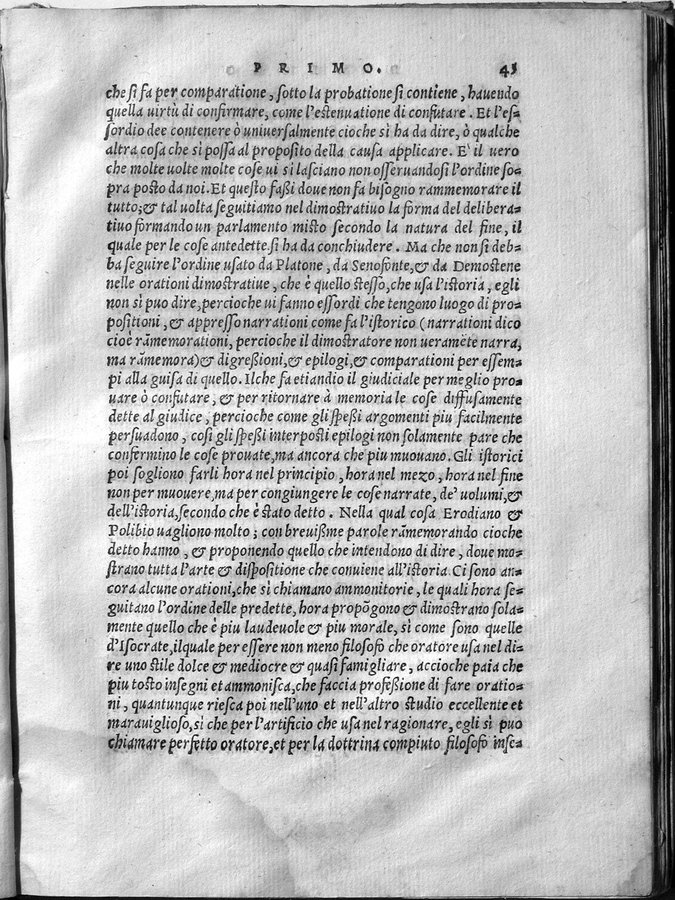 PRIMO. 43
che si fa per comparatione, sotto la probatione si contiene, havendo
quella uirtù di confirmare, come l'estenuatione di confutare. Et l'es=
sordio dee contenere ò uniuersalmente cioche si ha da dire, ò qualche
altra cosa che si possa al proposito della causa applicare. E' il uero
che molte uolte molte cose ui si lasciano non osseruandosi l'ordine so=
pra posto da noi. Et questo faßi doue non fa bisogno rammemorare il
tutto; & tal uolta seguitiamo nel dimostratiuo la forma del delibera=
tiuo formando un parlamento misto secondo la natura del fine, il
quale per le cose antedette si ha da conchiudere. Ma che non si deb=
ba seguire l'ordine usato da Platone, da Senofonte, & da Demostene
nelle orationi dimostratiue, che è quello stesso, che usa l'istoria, egli
non si puo dire, percioche ui fanno essordi che tengono luogo di pro=
positioni, & appresso narrationi come fa l'istorico (narrationi dico
cioè rãmemorationi, percioche il dimostratore non ueramẽte narra,
ma rãmemora) & digreßioni, & epilogi, & comparationi per essem=
pi alla guisa di quello. Ilche fa etiandio il giudiciale per meglio pro=
uare ò confutare, & per ritornare à memoria le cose diffusamente
dette al giudice, percioche come gli speßi argomenti piu facilmente
persuadono, così gli speßi interposti epilogi non solamente pare che
confermino le cose prouate, ma ancora che piu muouano. Gli istorici
poi sogliono farli hora nel principio, hora nel mezo, hora nel fine
non per muouere, ma per congiungere le cose narrate, de' uolumi, &
dell'istoria, secondo che è stato detto. Nella qual cosa Erodiano &
Polibio uagliono molto; con breuißme parole rãmemorando cioche
detto hanno, & proponendo quello che intendono di dire, doue mo=
strano tutta l'arte & dispositione che conuiene all'istoria. Ci sono an=
cora alcune orationi, che si chiamano ammonitorie, le quali hora se=
guitano l'ordine delle predette, hora propõgono & dimostrano sola=
mente quello che è piu laudeuole & piu morale, sì come sono quelle
d'Isocrate, ilquale per essere non meno filosofo che oratore usa nel di=
re uno stile dolce & mediocre & quasi famigliare, accioche paia che
piu tosto insegni et ammonisca, che faccia profeßione di fare oratio=
ni, quantunque riesca poi nell'uno et nell'altro studio eccellente et
marauiglioso, sì che per l'artificio che usa nel ragionare, egli si può
chiamare perfetto oratore, et per la dottrina compiuto filosofo inse=